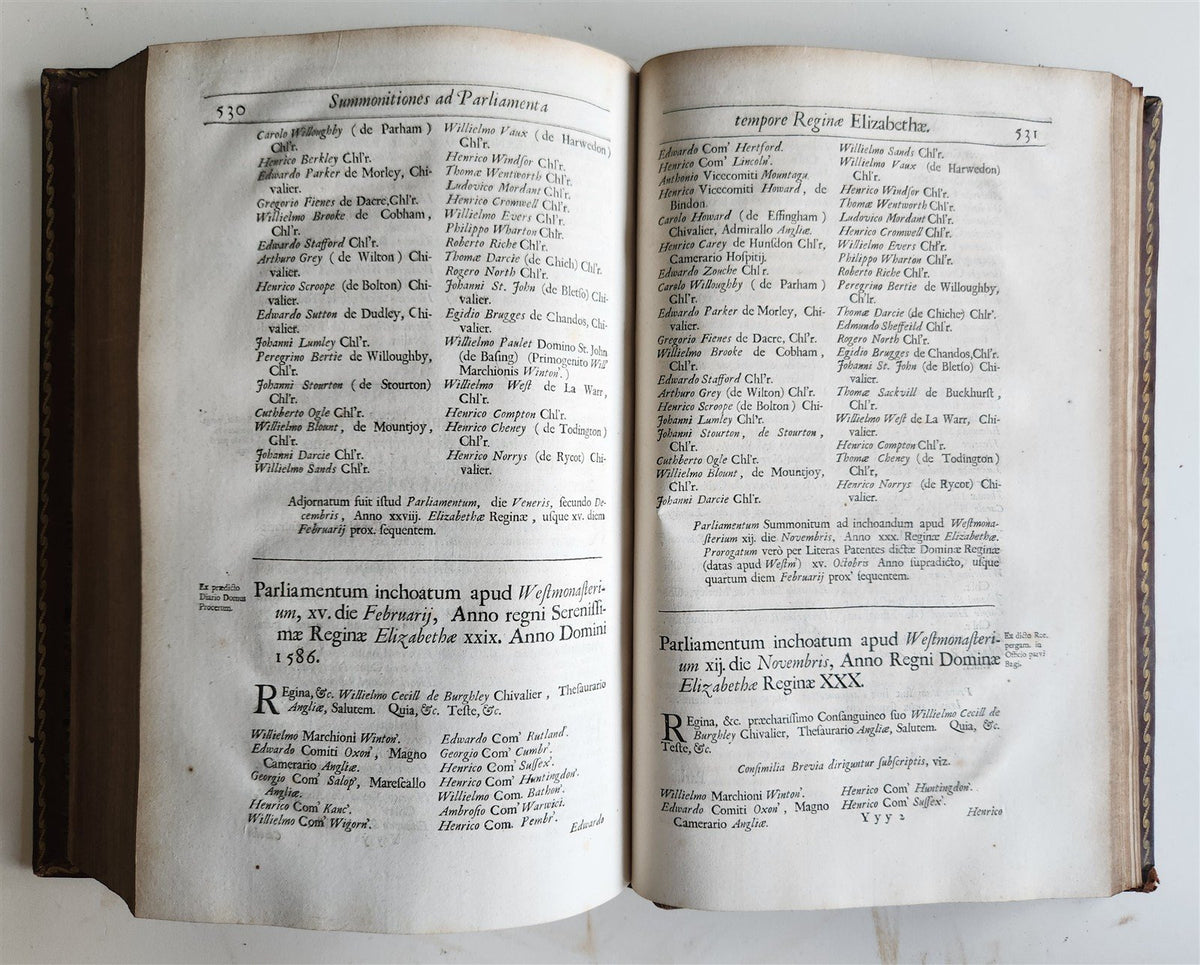 530
Summonitiones ad Parliamenta
Carolo Willoughby ( de Parham )
Chl'r.
Henrico Berkley Chl'r.
Edwardo Parker de Morley, Chi-
valier.
Gregorio Fienes de Dacre, Chl'r.
Willielmo Brooke de Cobham,
Chl'r.
Edwardo Stafford Chl'r.
Arthuro Grey ( de Wilton ) Chi-
valier.
Henrico Scroope (de Bolton) Chi-
valier.
Edwardo Sutton de Dudley, Chi-
valier.
Johanni Lumley Chl'r.
Peregrino Bertie de Willoughby,
Chl'r.
Johanni Stourton ( de Stourton)
Chl'r.
Cuthberto Ogle Chl'r.
Willielmo Blount, de Mountjoy,
Chl'r.
Johanni Darcie Chl'r.
Willielmo Sands Chl'r.
Willielmo Vaux (de Harwedon)
Chl'r.
Henrico Windſor Chl'r.
Thomæ Wentworth Chl'r.
Ludovico Mordant Chl'r.
Henrico Cromwell Chl'r.
Willielmo Evers Chl'r.
Philippo Wharton Chlr.
Roberto Riche Chl'r.
Thomæ Darcie (de Chich) Chl'r.
Rogero North Chl'r.
Johanni St. John (de Bletſo) Chi-
valier.
Egidio Brugges de Chandos, Chi-
valier.
Willielmo Paulet Domino St. John
(de Baſing) (Primogenito Will'
Marchionis Winton'.)
Willielmo Weſt de La Warr,
Chl'r.
Henrico Compton Chl'r.
Henrico Cheney ( de Todington)
Chl'r.
Henrico Norrys (de Rycot) Chi-
valier.
Adjornatum fuit iſtud Parliamentum, die Veneris, ſecundo De-
cembris, Anno xxviij. Elizabethæ Reginæ, uſque xv. diem
Februarij prox. ſequentem.
Ex prædicto
Diario Domus
Procerum.
Parliamentum inchoatum apud Weſtmonaſteri-
um, xv. die Februarij, Anno regni Sereniſſi-
mæ Reginæ Elizabethæ xxix. Anno Domini
1586.
REgina, &c. Willielmo Cecill de Burghley Chivalier, Theſaurario
Angliæ, Salutem. Quia, &c. Teſte, &c.
Willielmo Marchioni Winton'.
Edwardo Comiti Oxon', Magno
Camerario Angliæ.
Georgio Com' Salop', Mareſcallo
Angliæ.
Henrico Com' Kanc'.
Willielmo Com' Wigorn'.
Edwardo Com' Rutland'.
Georgio Com' Cumbr'.
Henrico Com' Suſſex'.
Henrico Com' Huntingdon'.
Willielmo Com. Bathon'.
Ambroſio Com' Warwici.
Henrico Com. Pembr'.
Edwardo
tempore Reginæ Elizabethæ.
531
Edwardo Com' Hertford.
Henrico Com' Lincoln'.
Anthonio Vicecomiti Mountagu.
Henrico Vicecomiti Howard, de
Bindon.
Carolo Howard (de Effingham)
Chivalier, Admirallo Angliæ.
Henrico Carey de Hunſdon Chl'r,
Camerario Hoſpitij.
Edwardo Zouche Chl'r.
Carolo Willoughby ( de Parham )
Chl'r.
Edwardo Parker de Morley, Chi-
valier.
Gregorio Fienes de Dacre, Chl'r.
Willielmo Brooke de Cobham,
Chl'r.
Edwardo Stafford Chl'r.
Arthuro Grey (de Wilton) Chl'r.
Henrico Scroope (de Bolton ) Chi-
Johanni Lumley Chl'r.
Johanni Stourton, de Stourton,
Chl'r.
Cuthberto Ogle Chl'r.
Willielmo Blount, de Mountjoy,
Chl'r.
Johanni Darcie Chl'r.
Willielmo Sands Chl'r.
Willielmo Vaux (de Harwedon)
Chl'r.
Henrico Windſor Chl'r.
Thomæ Wentworth Chl'r.
Ludovico Mordant Chl'r.
Henrico Cromwell Chl'r.
Willielmo Evers Chl'r.
Philippo Wharton Chl'r.
Roberto Riche Chl'r.
Peregrino Bertie de Willoughby,
Ch'lr.
Thomæ Darcie (de Chiche) Chlr'.
Edmundo Sheffeild Chl'r.
Rogero North Chl'r.
Egidio Brugges de Chandos, Chl'r.
Johanni St. John (de Bletſo) Chi-
valier.
Thomæ Sackvill de Buckhurſt,
Chl'r.
Willielmo Weſt de La Warr, Chi-
valier.
Henrico Compton Chl'r.
Thomæ Cheney (de Todington)
Chl'r,
Henrico Norrys (de Rycot) Chi-
valier.
Parliamentum Summonitum ad inchoandum apud Weſtmona-
ſterium xij. die Novembris, Anno xxx. Reginæ Elizabethæ.
Prorogatum verò per Literas Patentes dictæ Dominæ Reginæ
(datas apud Weſtm') xv. Octobris Anno ſupradicto, uſque
quartum diem Februarij prox' ſequentem.
Parliamentum inchoatum apud Weſtmonaſteri-
um xij. die Novembris, Anno Regni Dominæ
Elizabethæ Reginæ XXX.
Ex dicto Rot.
pergam. in
Officio parvi
Bagi.
REgina, &c. præchariſſimo Conſanguineo ſuo Willielmo Cecill de
Burghley Chivalier, Theſaurario Angliæ, Salutem. Quia, &c.
Teſte, &c.
Conſimilia Brevia diriguntur ſubſcriptis, viz.
Willielmo Marchioni Winton'.
Edwardo Comiti Oxon', Magno
Camerario Angliæ.
Henrico Com' Huntingdon'.
Henrico Com' Suſſex'.
Yyy 2
Henrico